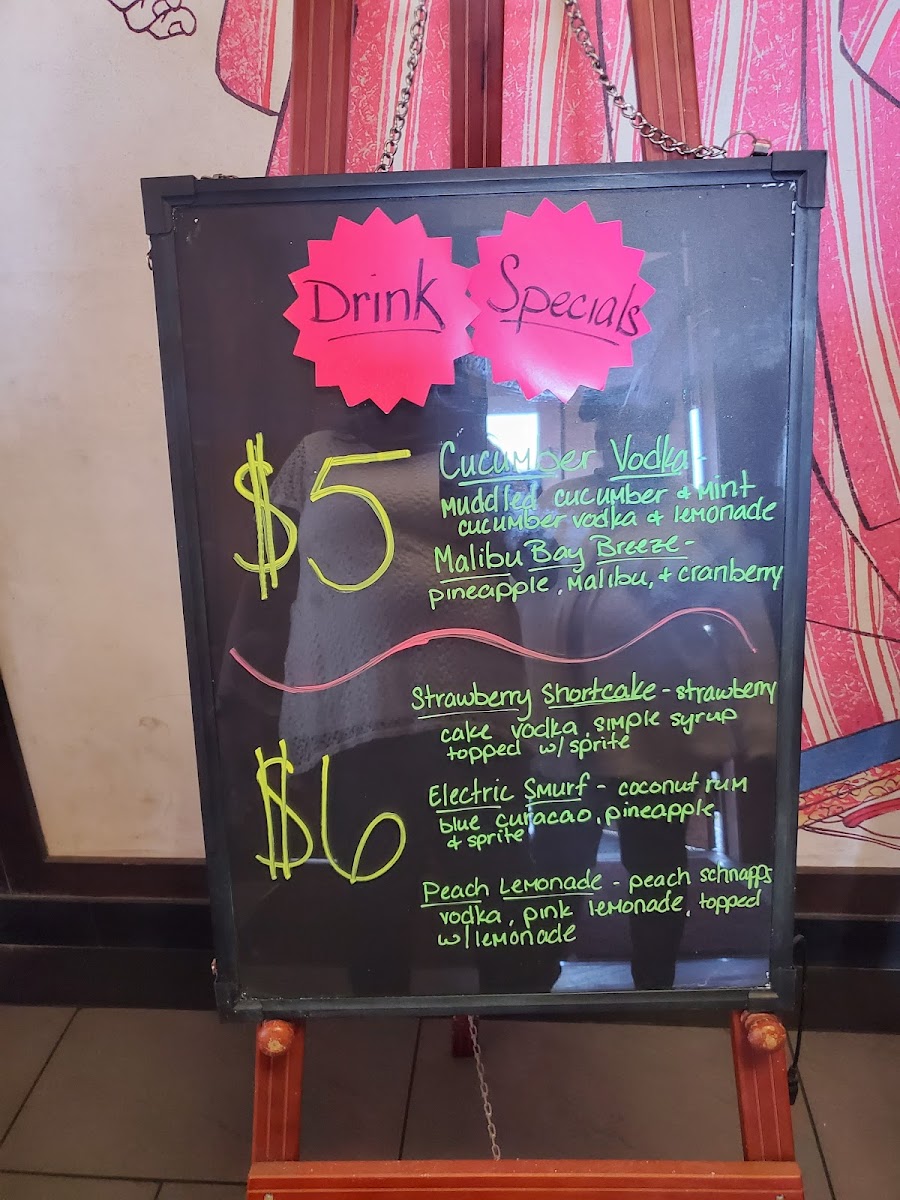 Drink Specials
$5
Cucumber Vodka -
muddled cucumber & mint
cucumber vodka & lemonade
Malibu Bay Breeze -
pineapple, Malibu, & cranberry
$6
Strawberry Shortcake - strawberry
cake vodka, simple syrup
topped w/ sprite
Electric Smurf - coconut rum
blue curacao, pineapple,
& sprite
Peach Lemonade - peach schnapps
vodka, pink lemonade, topped
w/ lemonade